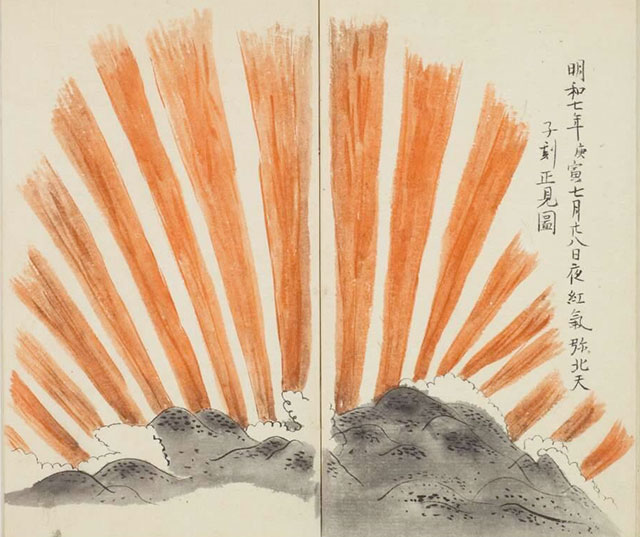 明和七年庚寅七月廿八日夜紅氣弥北天
子刻正見圖